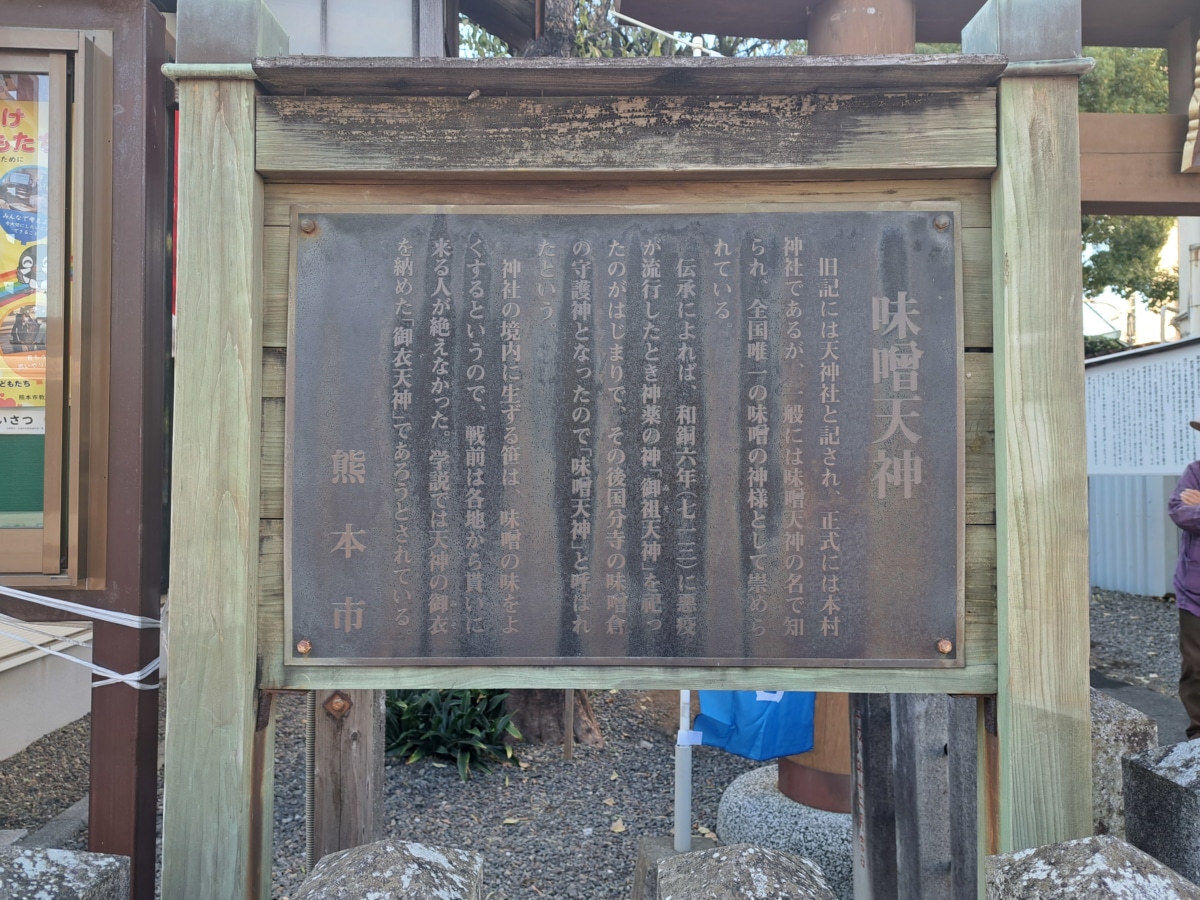 味噌天神
旧記には天神社と記され、正式には本村
神社であるが、一般には味噌天神の名で知
られ、全国唯一の味噌の神様として崇めら
れている
伝承によれば、和銅六年(七一三)に悪疫
が流行したとき神薬の神「御祖天神」を祀っ
たのがはじまりで、その後国分寺の味噌倉
の守護神となったので「味噌天神」と呼ばれ
たという。
神社の境内に生ずる笹は、味噌の味をよ
くするというので、戦前は各地から貰いに
来る人が絶えなかった。学説では天神の御衣
を納めた「御衣天神」であろうとされている。
熊本市
け
もた
ために
みんなで考え
どもたち
いさつ